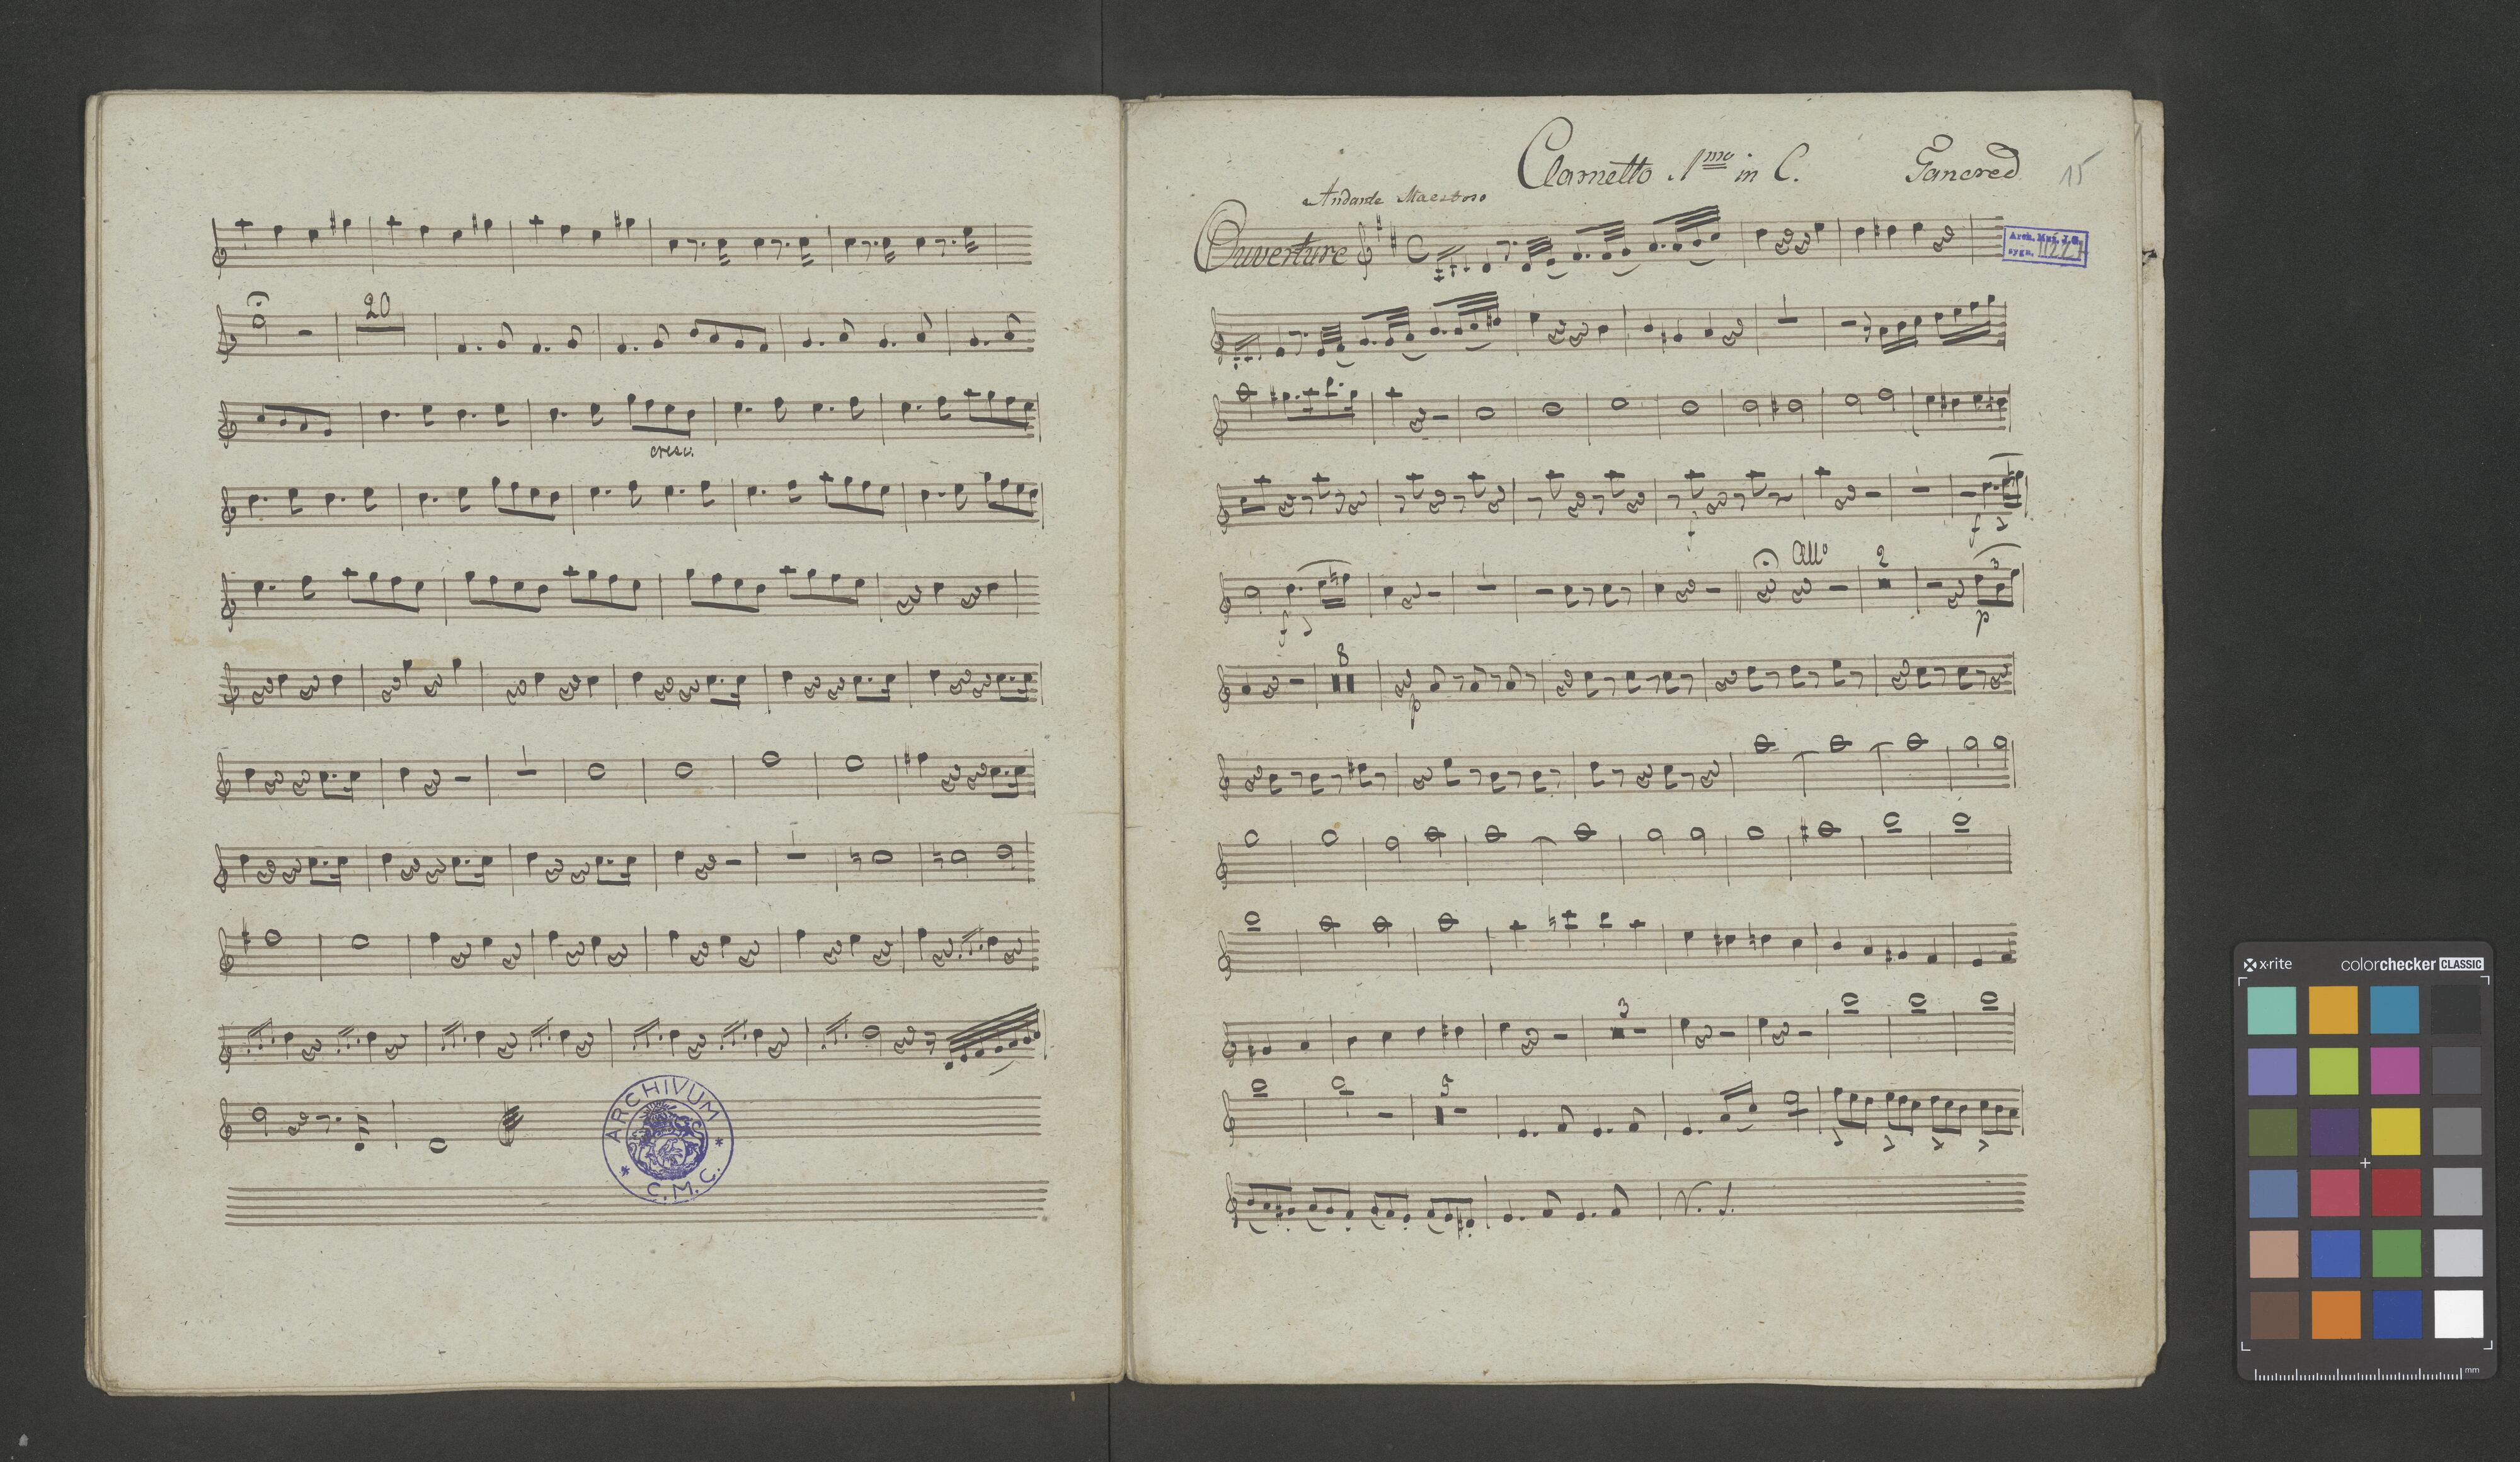 20
cresc.
ARCHIVUM
* C.M.C. *
Clarnetto 1mo in C. Tancred
15
Andante Maestoso
Ouverture
Arch. Muz. J.G.
sygn.
f
f
f
Allo
2
3
p
8
p
3
5
V. S.
x-rite colorchecker CLASSIC
mm